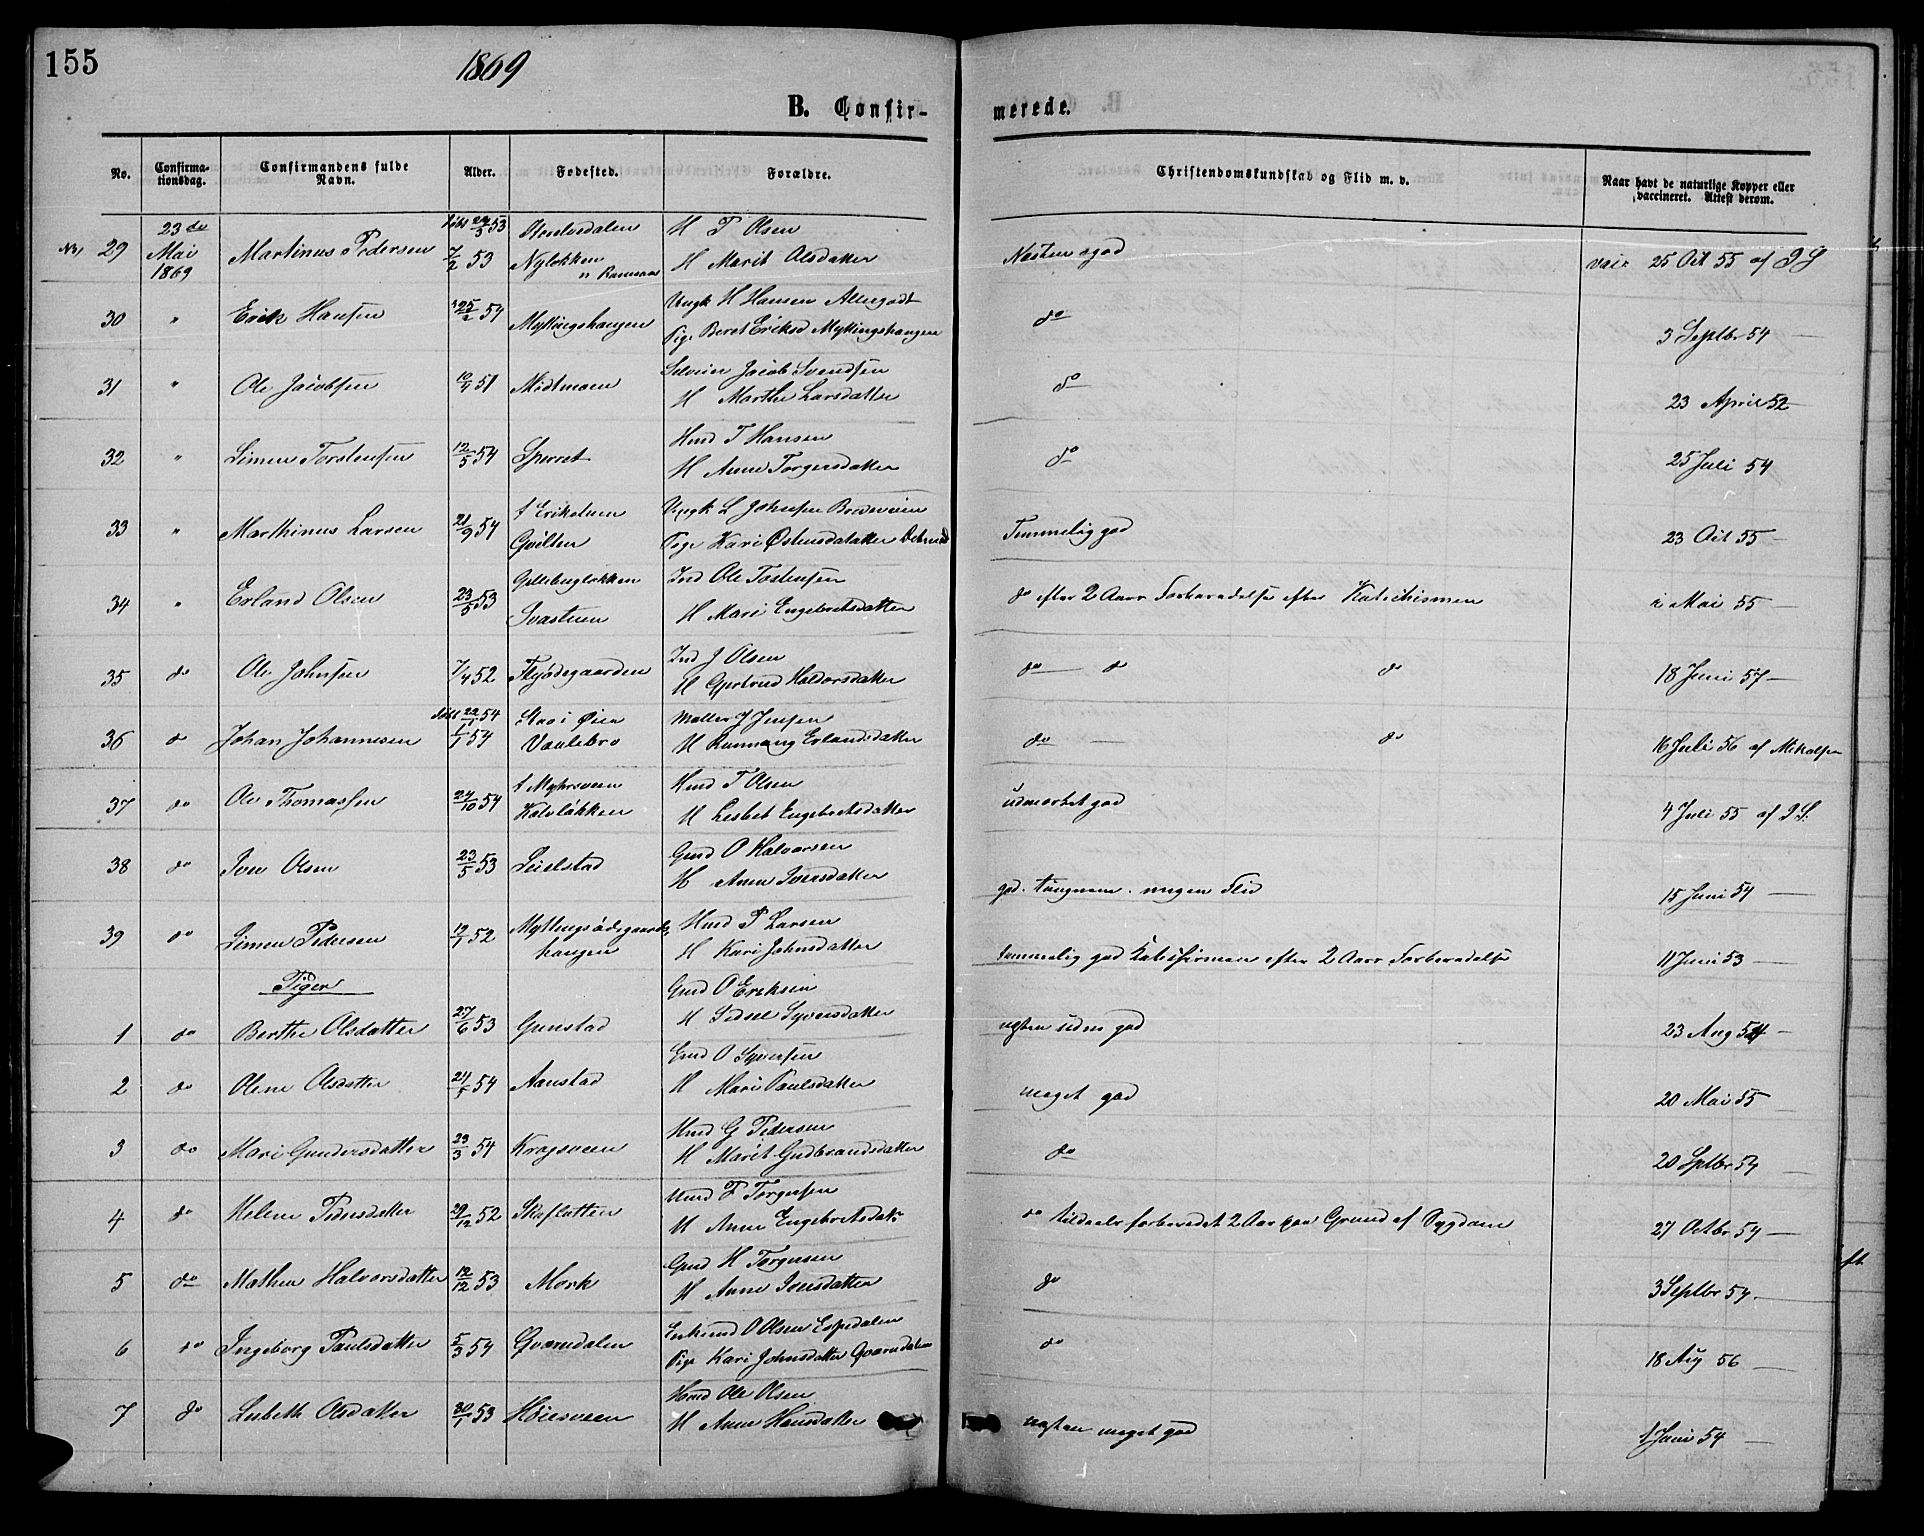 155
1869
B. Confir-
merede.
No.
Confirma-
tionsdag.
Confirmandens fulde
Navn.
Alder.
Fødested.
Forældre.
Christendomskundskab og Flid m. v.
Naar havt de naturlige Kopper eller
vaccineret. Attest derom.
29 23de Mai 1869 Martinus Pedersen 7/2 53 Nyløkken H P Olsen
H Marit Olsdatter
Næsten god vacc 25 Oct 55 af
30 " Erik Hansen 54 Myttingshaugen Ungk H Hansen
Pige Beret Eriksd Myttingshaugen
do 3 Septbr 54 —
31 " Ole Jacobsen 51 Midtmoen Jacob Svendsen
H Marthe Larsdatter
do 23 April 52
32 " Simen Torstensen 12/5 54 Sperret Hmd T Hansen
H Anne Torgersdatter
do 25 Juli 54
33 " Marthinus Larsen 21/9 54 Ungk L Johnsen
Pige Kari Østensdatatter
Temmelig god 23 Oct 55 —
34 " Erland Olsen 23/5 53 Svastuen Ind Ole Tostensen
H Mari Engebretsdatter
do efter 2 Aars Forberedelse efter Katechismen Mai 55 —
35 do Ole Johnsen 7/4 52 Flyødegaarden Ind J Olsen
H Gjertrud Haldorsdatter
do — do do 18 Juni 57 —
36 do Johan Johannesen 1/1 54 Vaalebro Møller J Jensen
H Erlandsdatter
do — do 16 Juli 56 af
37 do Ole Thomassen 24/10 54 Kalvløkken Hmd T Olsen
H Lisbet Engebretsdatter
udmærket god 4 Juli 55 af
38 do Iver Olsen 23/5 53 Leielstad Gmd O Halvorsen
H Anne Iversdatter
god. tungnem. megen Flid 15 Juni 54 —
39 do Simen Pedersen 12/1 52 Myttingsødegaards
haugen Hmd P Larsen
H Kari Johnsdatter
temmelig god efter 2 Aars Forberedelse 11 Juni 53 —
Piger
1 do Berthe Olsdatter 27/6 53 Gunstad Gmd O Eriksen
H Sidsel Syversdatter
næsten udm god 23 Aug 54 —
2 do Oline Olsdatter 54 Aanstad Gmd O Syversen
H Mari Paulsdatter
meget god 20 Mai 55 —
3 do Mari Gundersdatter 23/3 54 Kragsveen Hmd G Pedersen
H Marit Gudbrandsdatter
do 20 Septbr 54 —
4 do Helene Pedersdatter 29/12 52 Skaflotten Hmd P Torgersen
H Anne Engebretsdatr
do tildeels forberedet 2 Aar paa Grund af Sygdom 27 Octbr 54 —
5 do Mathea Halvorsdatter 12/12 53 Mork Gmd H Torgersen
H Anne Iversdatter
do 3 Septbr 54.
6 do Ingeborg Paulsdatter 5/3 54 Qværndalen Enkemd O Olsen Espedalen
Pige Kari Johnsdatter Qværndalen
do 18 Aug 56 —
7 do Lisbeth Olsdatter 30/1 53 Høiesveen Hmd Ole Olsen
H Anne Hansdatter
næsten meget god 1 Juni 54 —